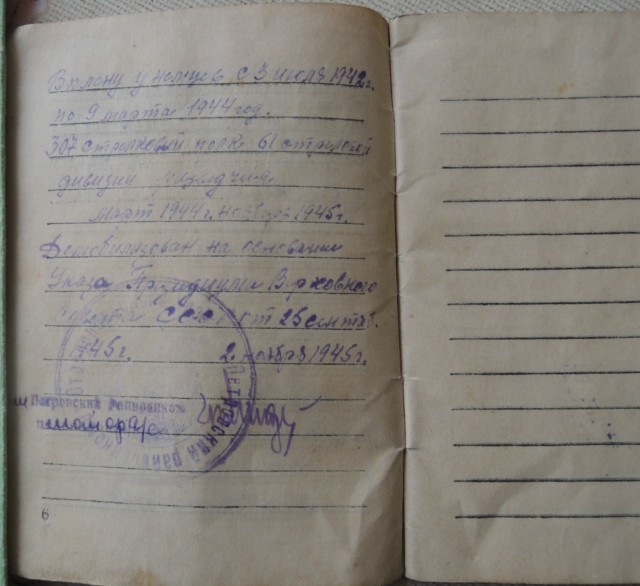 В плену у немцев с 3 июля 1942г.
по 9 марта 1944 год.
307 стрелковый полк 61 стрелковой
дивизии разведчик
март 1944 г. ноябрь 1945г.
Демобилизован на основании
Указа Президиума Верховного
Совета СССР от 25 сентяб.
1945г. 2 ноября 1945г.
Петровский Райвоенком
6